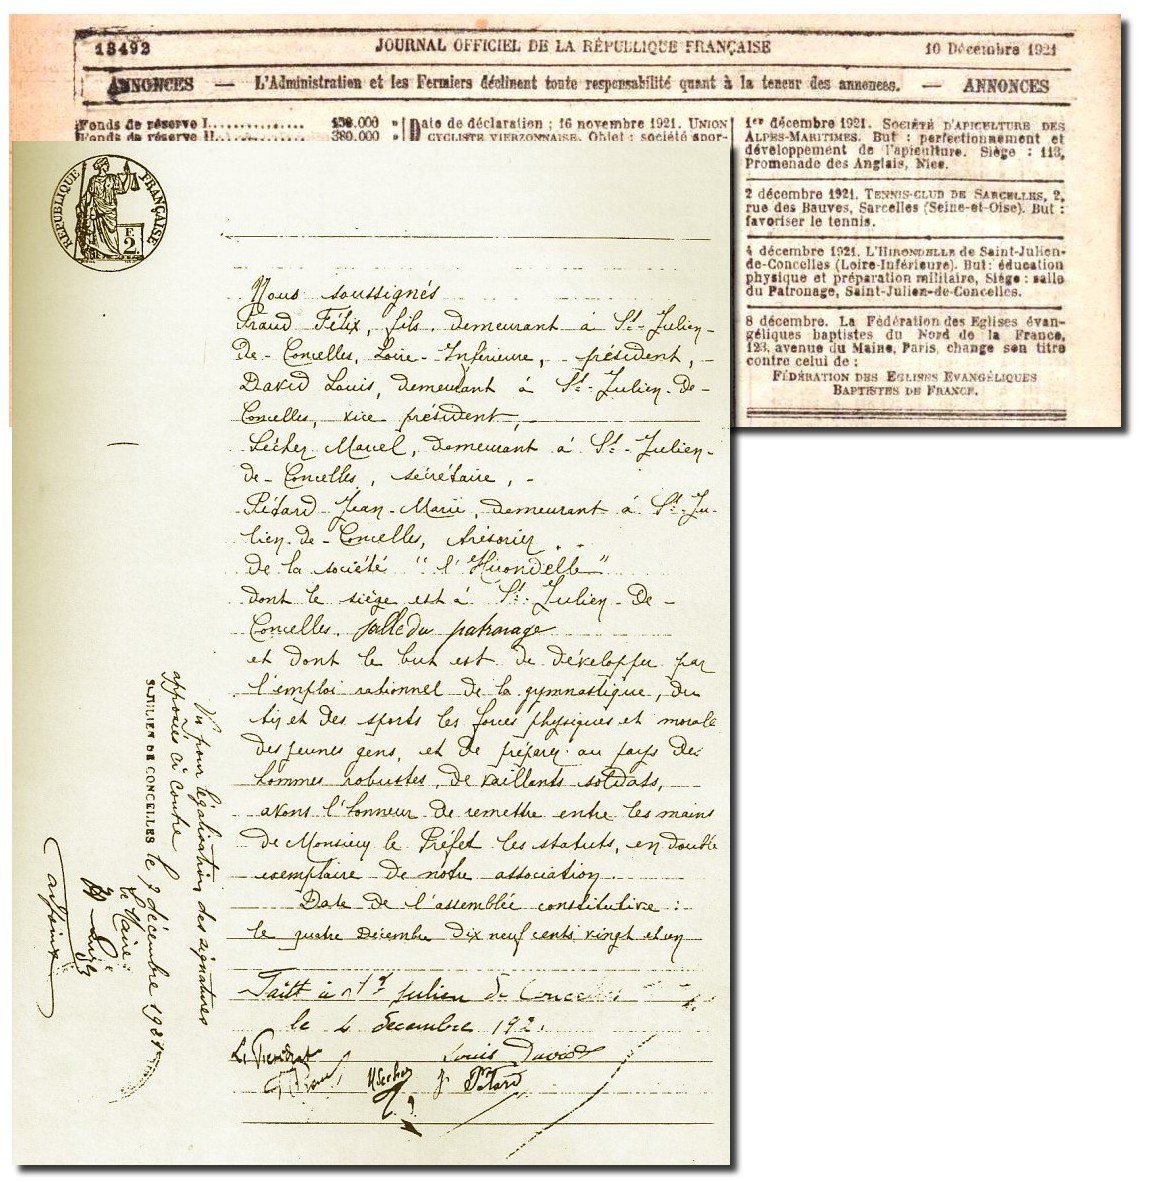 13492
JOURNAL OFFICIEL DE LA RÉPUBLIQUE FRANÇAISE
10 Décembre 1921
ANNONCES — L'Administration et les Fermiers déclinent toute responsabilité quant à la teneur des annonces. — ANNONCES
Fonds de réserve I..............
Fonds de réserve II............. 380.000 »
Date de déclaration ; 16 novembre 1921. UNION
CYCLISTE VIERZONNAISE. Objet : société spor-
1er décembre 1921. SOCIÉTÉ D'APICULTURE DES
ALPES-MARITIMES. But : perfectionnement et
développement de l'apiculture. Siège : 113,
Promenade des Anglais, Nice.
2 décembre 1921. TENNIS-CLUB DE SARCELLES, 2,
rue des Bauves, Sarcelles (Seine-et-Oise). But :
favoriser le tennis.
4 décembre 1921. L'HIRONDELLE de Saint-Julien-
de-Concelles (Loire-Inférieure). But : éducation
physique et préparation militaire, Siège : salle
du Patronage, Saint-Julien-de-Concelles.
8 décembre. La Fédération des Eglises évan-
géliques baptistes du Nord de la France,
123, avenue du Maine, Paris, change son titre
contre celui de :
FÉDÉRATION DES EGLISES EVANGÉLIQUES
BAPTISTES DE FRANCE.
RÉPUBLIQUE FRANÇAISE
F. 2
Nous soussignés
Praud Félix, fils, demeurant à St-Julien-
de-Concelles, Loire-Inférieure, président,
David Louis, demeurant à St-Julien-de-
Concelles, vice président,
Sécher Marcel, demeurant à St-Julien-
de-Concelles, secrétaire,
Pétard Jean-Marie, demeurant à St-Ju-
lien-de-Concelles, trésorier
de la société "l'Hirondelle"
dont le siège est à St-Julien-de-
Concelles, salle du patronage
et dont le but est de développer par
l'emploi rationnel de la gymnastique, du
tir et des sports les forces physiques et morale
des jeunes gens, et de préparer au pays des
hommes robustes, de vaillants soldats,
avons l'honneur de remettre entre les mains
de Monsieur le Préfet les statuts, en double
exemplaire de notre association.
Date de l'assemblée constitutive :
le quatre Décembre dix neuf cents vingt et un
Fait à St Julien de Concelles
le 4 décembre 192
Le Président
Louis David
M Sécher
J Pétard
Vu pour légalisation des signatures
apposées ci contre
ST-JULIEN DE CONCELLES le 7 décembre 1921
Le Maire